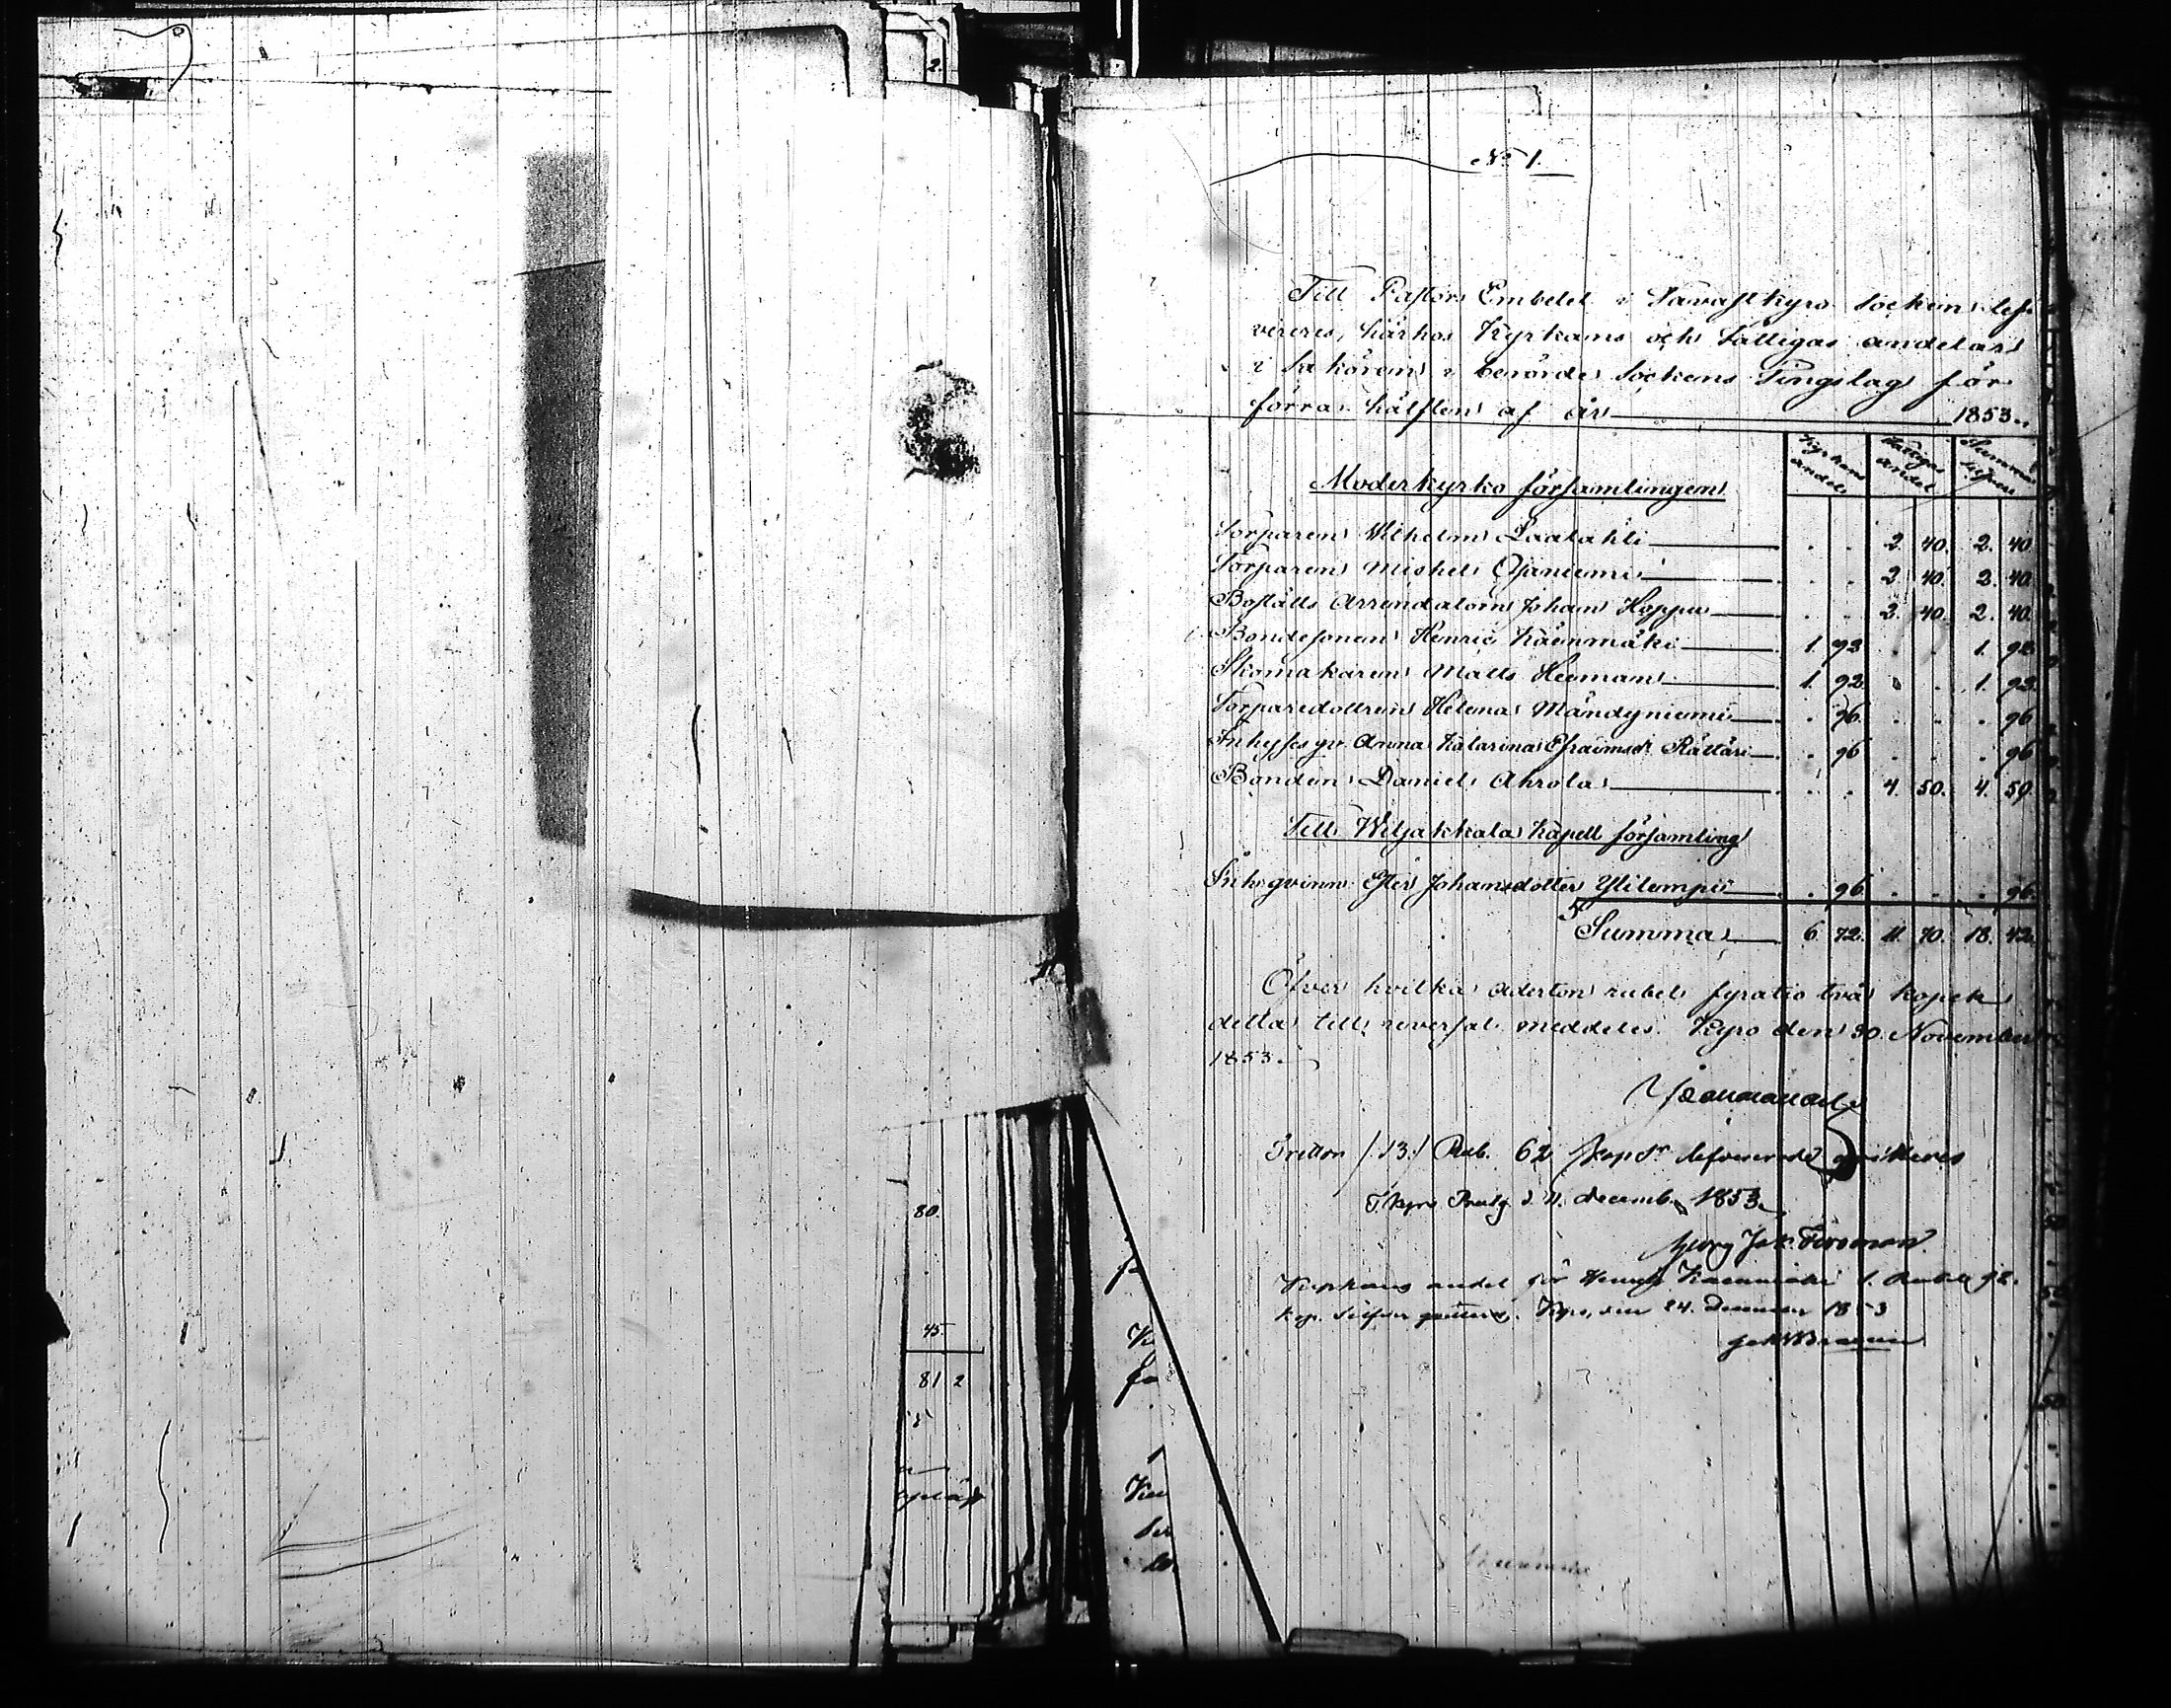 2.
No 1.
Till Pastors Embetet i Tavastkyro Socken lef-
vereres, härhos Kyrkans och Fattigas andelar
i Sakören i berörde Sockens Tingslag för
förra hälften af år 1853.
Kyrkans andel Fattigas andel Summa
Moderkyrko församlingen
Torparen Wilhelm Laalahti . . 2. 40. 2. 40.
Torparen Mickel Ojaniemi . . 2. 40. 2. 40.
Boställs Arrendatorn Johan Hoppu . . 2. 40. 2. 40.
Bondesonen Henric Käenmäki 1. 92 . . 1. 92
Skomakaren Matts Heeman 1. 92. . . 1. 92.
Torparedottren Helena Mändyniemi . 96. . . . 96
Inhyses qv. Anna Katarina Efraimsdr Rättäri . 96 . . . 96
Bonden Daniel Ahrola . . 4. 50. 4. 50
Till Wiljakkala Kapell församling
Inh. qvinn. Ester Johansdotter Ylilempii . 96 . . . 96.
Summa 6 72. 11. 70. 18. 42.
Öfver hvilka aderton rubel fyratio två kopek
detta till reversal meddeles. Kyro den 30. November
1853.
Tretton /13/ Rub. 62 Kop Sr lefvererade qvitteres
T.kyro d. 11. decemb. 1853.
Georg Jak. Forsman
Kyrkans andel för Henric Kaenmäki 1. Rubel 92.
Kop. Silfver qvitteras. Kyro, den 24. December 1853
80.
45.
81 2
50
50